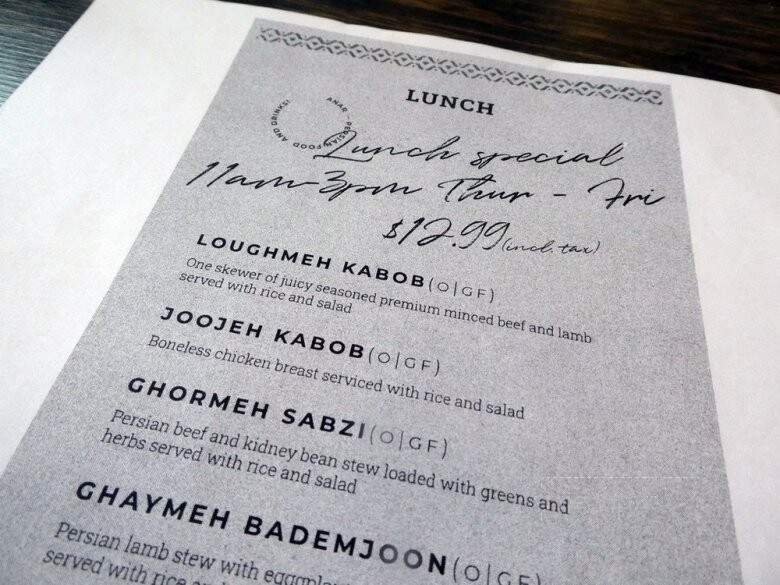 LUNCH
ANAR - PERSIAN FOOD AND DRINKS!
Lunch special
11am-3pm Thur - Fri
$12.99 (incl. tax)
LOUGHMEH KABOB (O|GF)
One skewer of juicy seasoned premium minced beef and lamb
served with rice and salad
JOOJEH KABOB (O|GF)
Boneless chicken breast serviced with rice and salad
GHORMEH SABZI (O|GF)
Persian beef and kidney bean stew loaded with greens and
herbs served with rice and salad
GHAYMEH BADEMJOON (O|GF)
Persian lamb stew with
served with rice